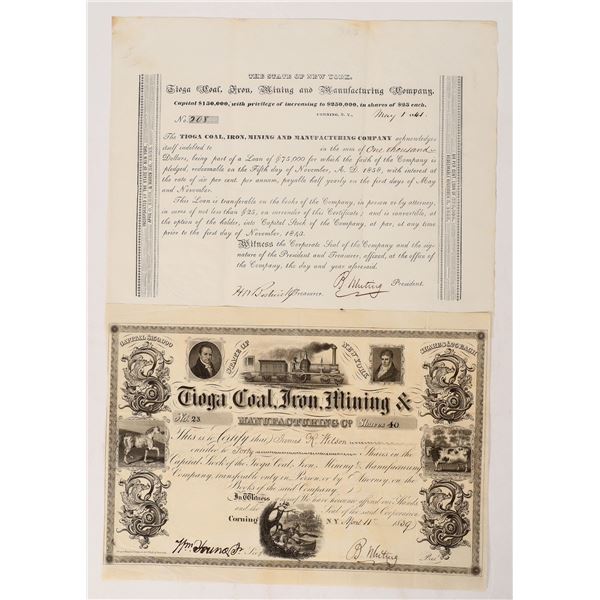 THE STATE OF NEW YORK.
Tioga Coal, Iron, Mining and Manufacturing Company.
Capital $150,000, with privilege of increasing to $250,000, in shares of $25 each.
CORNING, N. Y., May 1 1841.
No. 208
The TIOGA COAL, IRON, MINING AND MANUFACTURING COMPANY acknowledges
itself indebted to in the sum of One thousand
Dollars, being part of a Loan of $75,000 for which the faith of the Company is
pledged, redeemable on the Fifth day of November, A. D. 1856, with interest at
the rate of six per cent. per annum, payable half yearly on the first days of May
and November.
This Loan is transferable on the books of the Company, in person or by attorney,
in sums of not less than $25, on surrender of this Certificate; and is convertible, at
the option of the holder, into Capital Stock of the Company, at par, at any time
prior to the first day of November, 1843.
Witness the Corporate Seal of the Company and the sig-
nature of the President and Treasurer, affixed, at the office of
the Company, the day and year aforesaid.
Treasurer. B. Whiting President.
CAPITAL $150,000
STATE OF NEW YORK
SHARES $25 EACH
Tioga Coal, Iron, Mining &
No. 23 MANUFACTURING Co. Shares 40
This is to Certify that James R. Wilson
entitled to Forty Shares in the
Capital Stock of the Tioga Coal, Iron, Mining & Manufacturing
Company, transferable only in Person or by Attorney on the
Books of the said Company
In Witness whereof We have hereunto affixed our Hands
and the Seal of the said Corporation
Corning NY April 11th 1839
Wm Young Jr. Sec. B. Whiting Pres.